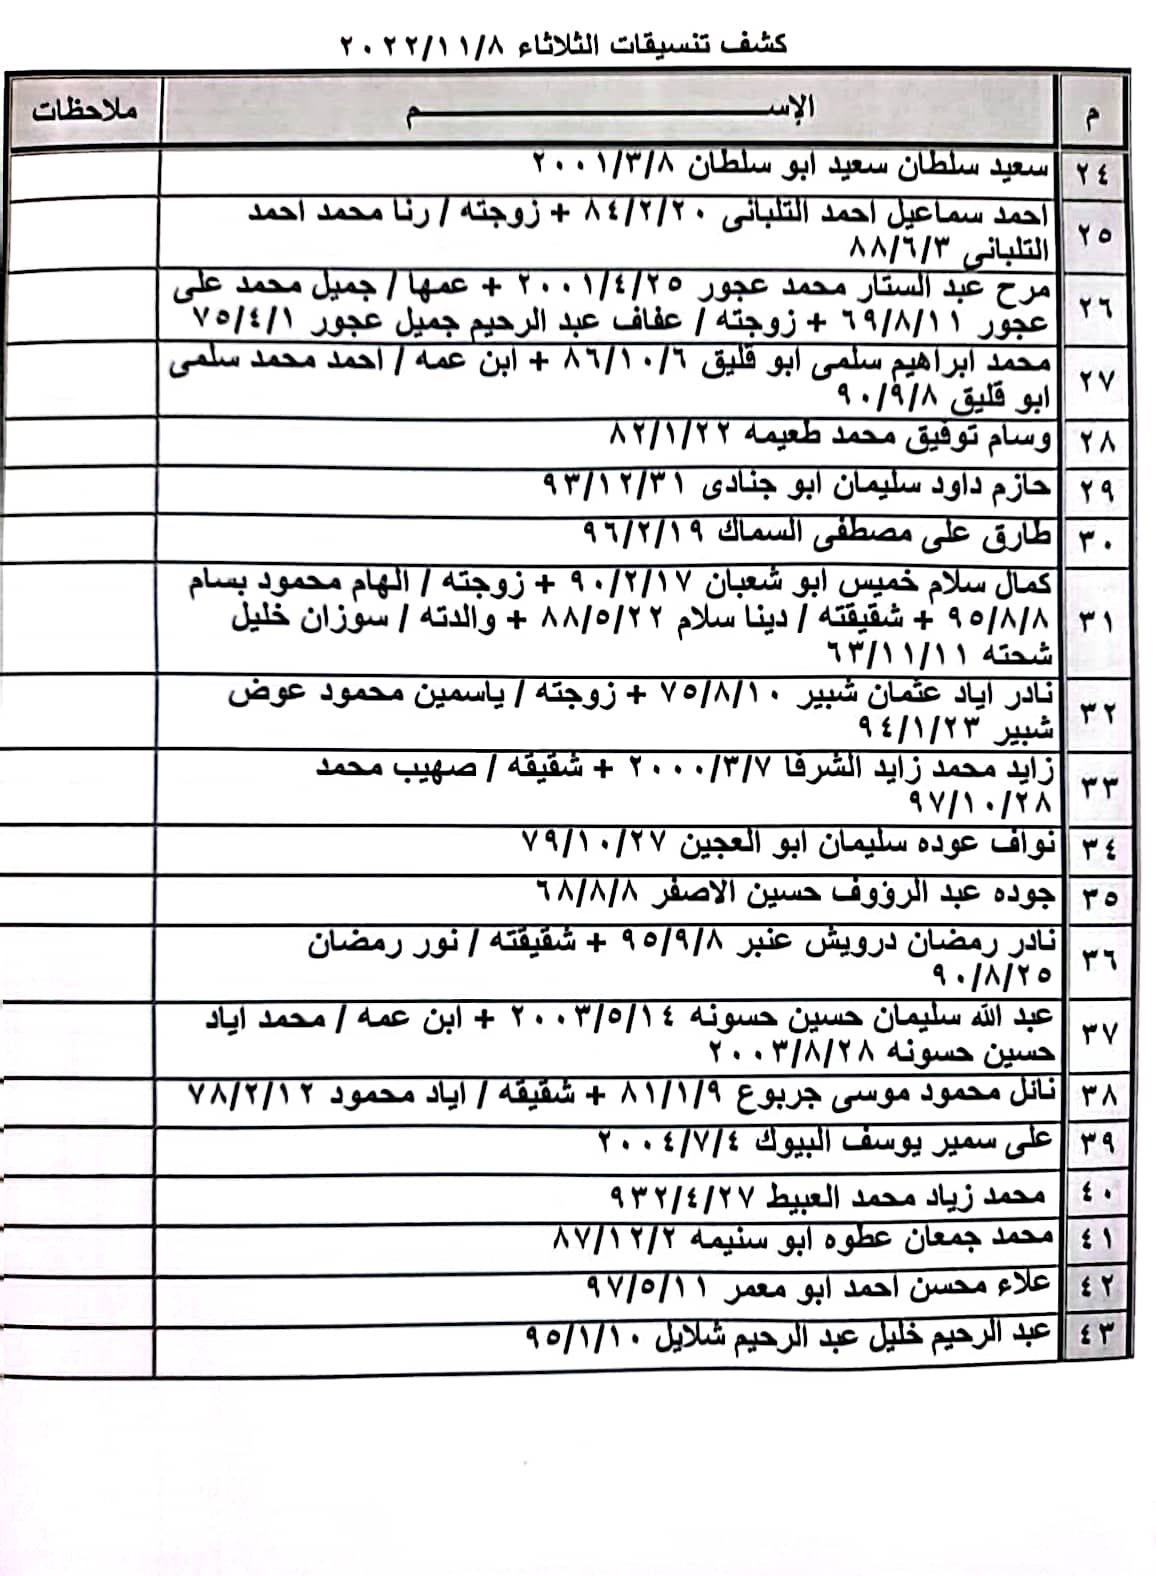 كشف تنسيقات الثلاثاء ٢٠٢٢/١١/٨
م الإســـــــم ملاحظات
٢٤ سعيد سلطان سعيد ابو سلطان ٢٠٠١/٣/٨
٢٥ احمد سماعيل احمد التلبانى ٨٤/٢/٢٠ + زوجته / رنا محمد احمد
التلبانى ٨٨/٦/٣
٢٦ مرح عبد الستار محمد عجور ٢٠٠١/٤/٢٥ + عمها / جميل محمد على
عجور ٦٩/٨/١١ + زوجته / عفاف عبد الرحيم جميل عجور ٧٥/٤/١
٢٧ محمد ابراهيم سلمى ابو قليق ٨٦/١٠/٦ + ابن عمه / احمد محمد سلمى
ابو قليق ٩٠/٩/٨
٢٨ وسام توفيق محمد طعيمه ٨٢/١/٢٢
٢٩ حازم داود سليمان ابو جنادى ٩٣/١٢/٣١
٣٠ طارق على مصطفى السماك ٩٦/٢/١٩
٣١ كمال سلام خميس ابو شعبان ٩٠/٢/١٧ + زوجته / الهام محمود بسام
٩٥/٨/٨ + شقيقته / دينا سلام ٨٨/٥/٢٢ + والدته / سوزان خليل
شحته ٦٣/١١/١١
٣٢ نادر اياد عثمان شبير ٧٥/٨/١٠ + زوجته / ياسمين محمود عوض
شبير ٩٤/١/٢٣
٣٣ زايد محمد زايد الشرفا ٢٠٠٠/٣/٧ + شقيقه / صهيب محمد
٩٧/١٠/٢٨
٣٤ نواف عوده سليمان ابو العجين ٧٩/١٠/٢٧
٣٥ جوده عبد الرؤوف حسين الاصفر ٦٨/٨/٨
٣٦ نادر رمضان درويش عنبر ٩٥/٩/٨ + شقيقته / نور رمضان
٩٠/٨/٢٥
٣٧ عبد الله سليمان حسين حسونه ٢٠٠٣/٥/١٤ + ابن عمه / محمد اياد
حسين حسونه ٢٠٠٣/٨/٢٨
٣٨ نائل محمود موسى جربوع ٨١/١/٩ + شقيقه / اياد محمود ٧٨/٢/١٢
٣٩ على سمير يوسف البيوك ٢٠٠٤/٧/٤
٤٠ محمد زياد محمد العبيط ٩٣٢/٤/٢٧
٤١ محمد جمعان عطوه ابو سنيمه ٨٧/١٢/٢
٤٢ علاء محسن احمد ابو معمر ٩٧/٥/١١
٤٣ عبد الرحيم خليل عبد الرحيم شلايل ٩٥/١/١٠